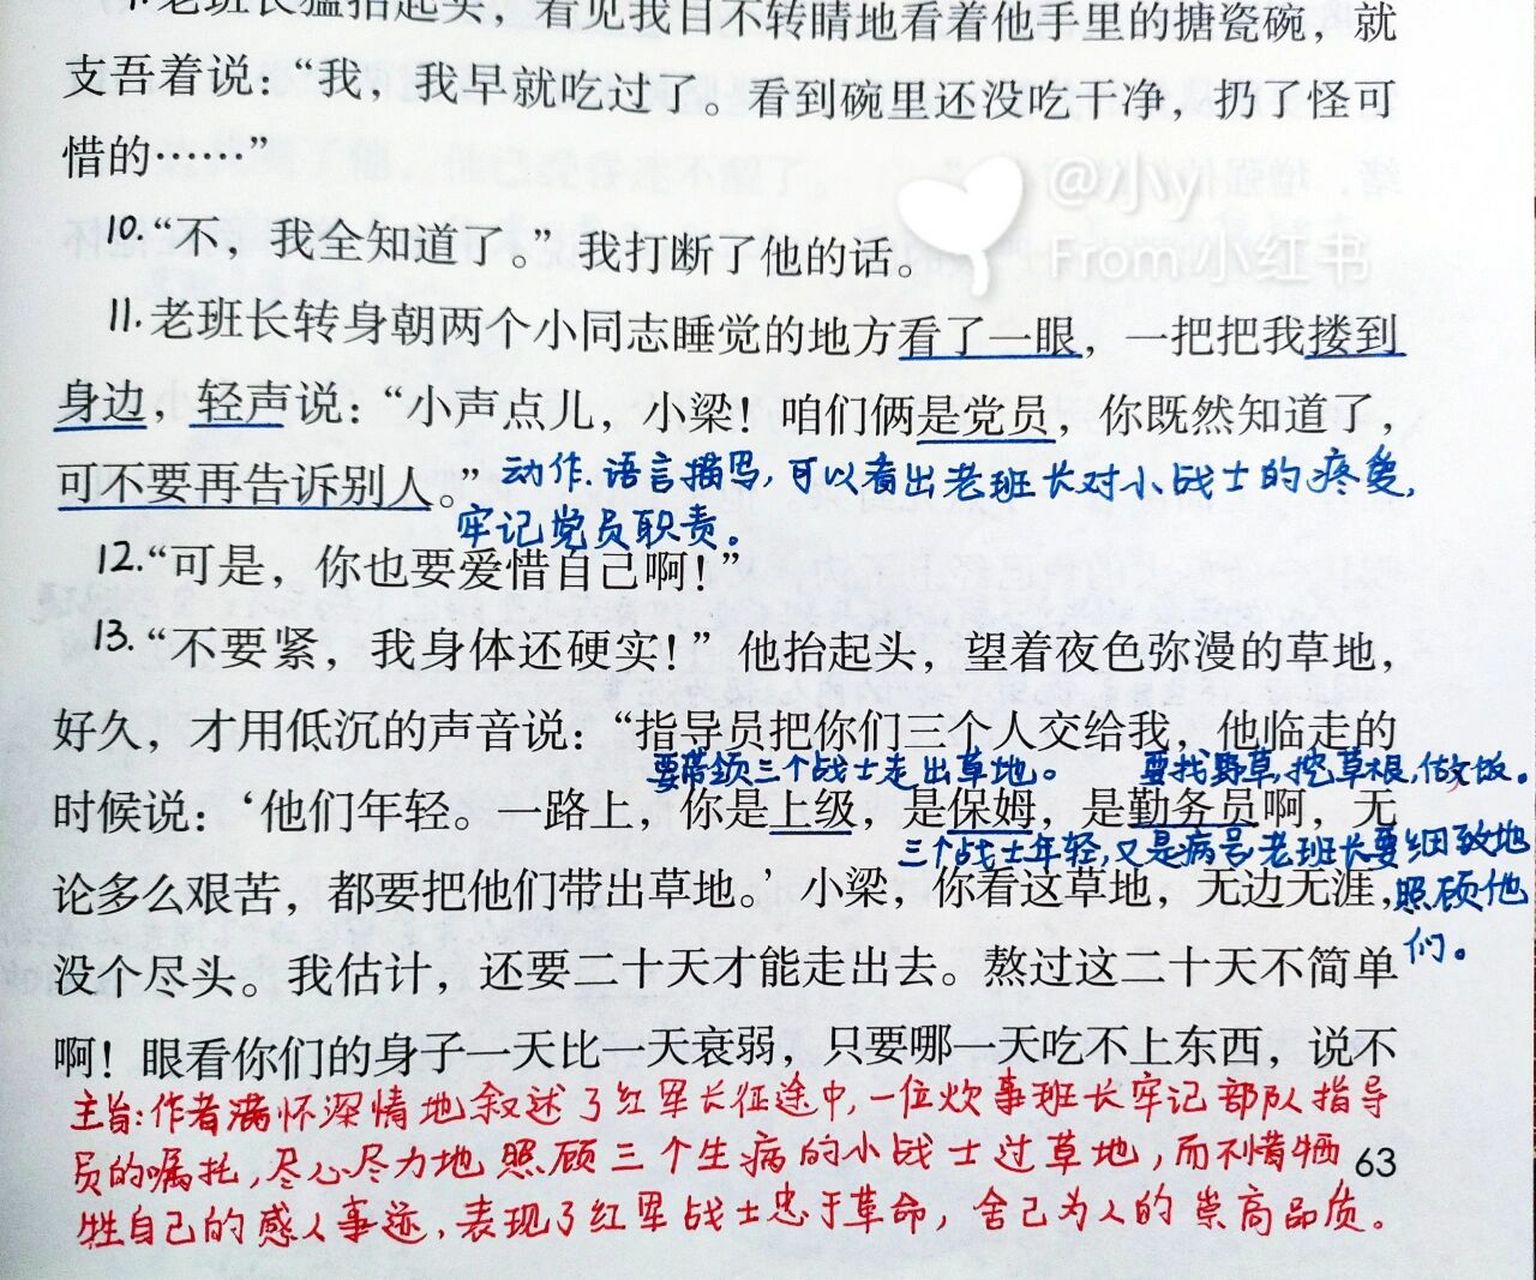 9.老班长猛抬起头，看见我目不转睛地看着他手里的搪瓷碗，就
支吾着说：“我，我早就吃过了。看到碗里还没吃干净，扔了怪可
惜的……”
@小y
From 小红书
10.“不，我全知道了。”我打断了他的话。
11.老班长转身朝两个小同志睡觉的地方看了一眼，一把把我搂到
身边，轻声说：“小声点儿，小梁！咱们俩是党员，你既然知道了，
可不要再告诉别人。”
动作.语言描写,可以看出老班长对小战士的疼爱,
牢记党员职责。
12.“可是，你也要爱惜自己啊！”
13.“不要紧，我身体还硬实！”他抬起头，望着夜色弥漫的草地，
好久，才用低沉的声音说：“指导员把你们三个人交给我，他临走的
要带领三个战士走出草地。 要找野草,挖草根,做饭。
时候说：‘他们年轻。一路上，你是上级，是保姆，是勤务员啊，无
三个战士年轻,又是病号老班长要细致地
论多么艰苦，都要把他们带出草地。’小梁，你看这草地，无边无涯，
照顾他
们。
没个尽头。我估计，还要二十天才能走出去。熬过这二十天不简单
啊！眼看你们的身子一天比一天衰弱，只要哪一天吃不上东西，说不
主旨:作者满怀深情地叙述了红军长征途中,一位炊事班长牢记部队指导
员的嘱托,尽心尽力地照顾三个生病的小战士过草地,而不惜牺
牲自己的感人事迹,表现了红军战士忠于革命,舍己为人的崇高品质。
63